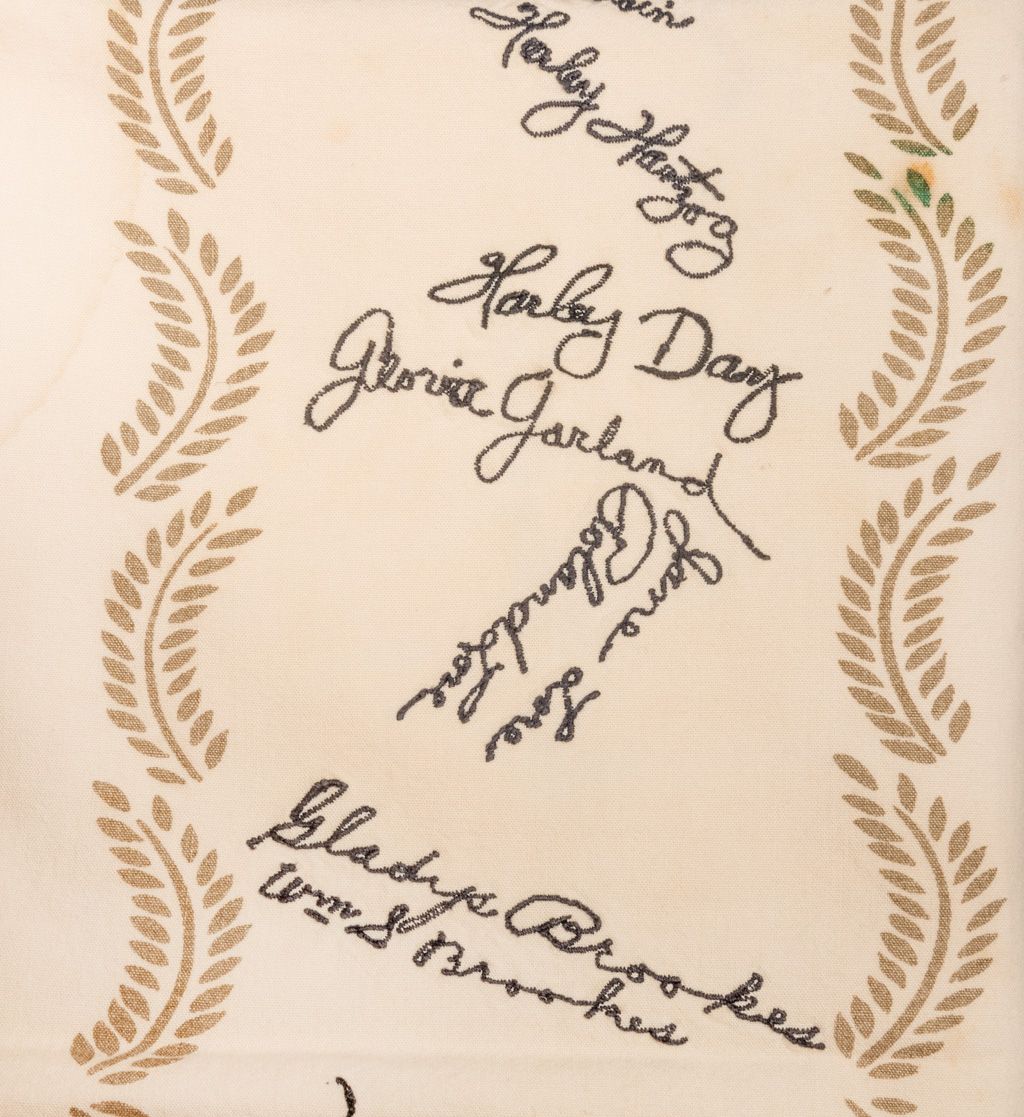 Harley Hartzog
Harley Day
Gloria Garland
Roland Lore
Jane Lore
Gladys Brookes
Wm S Brookes